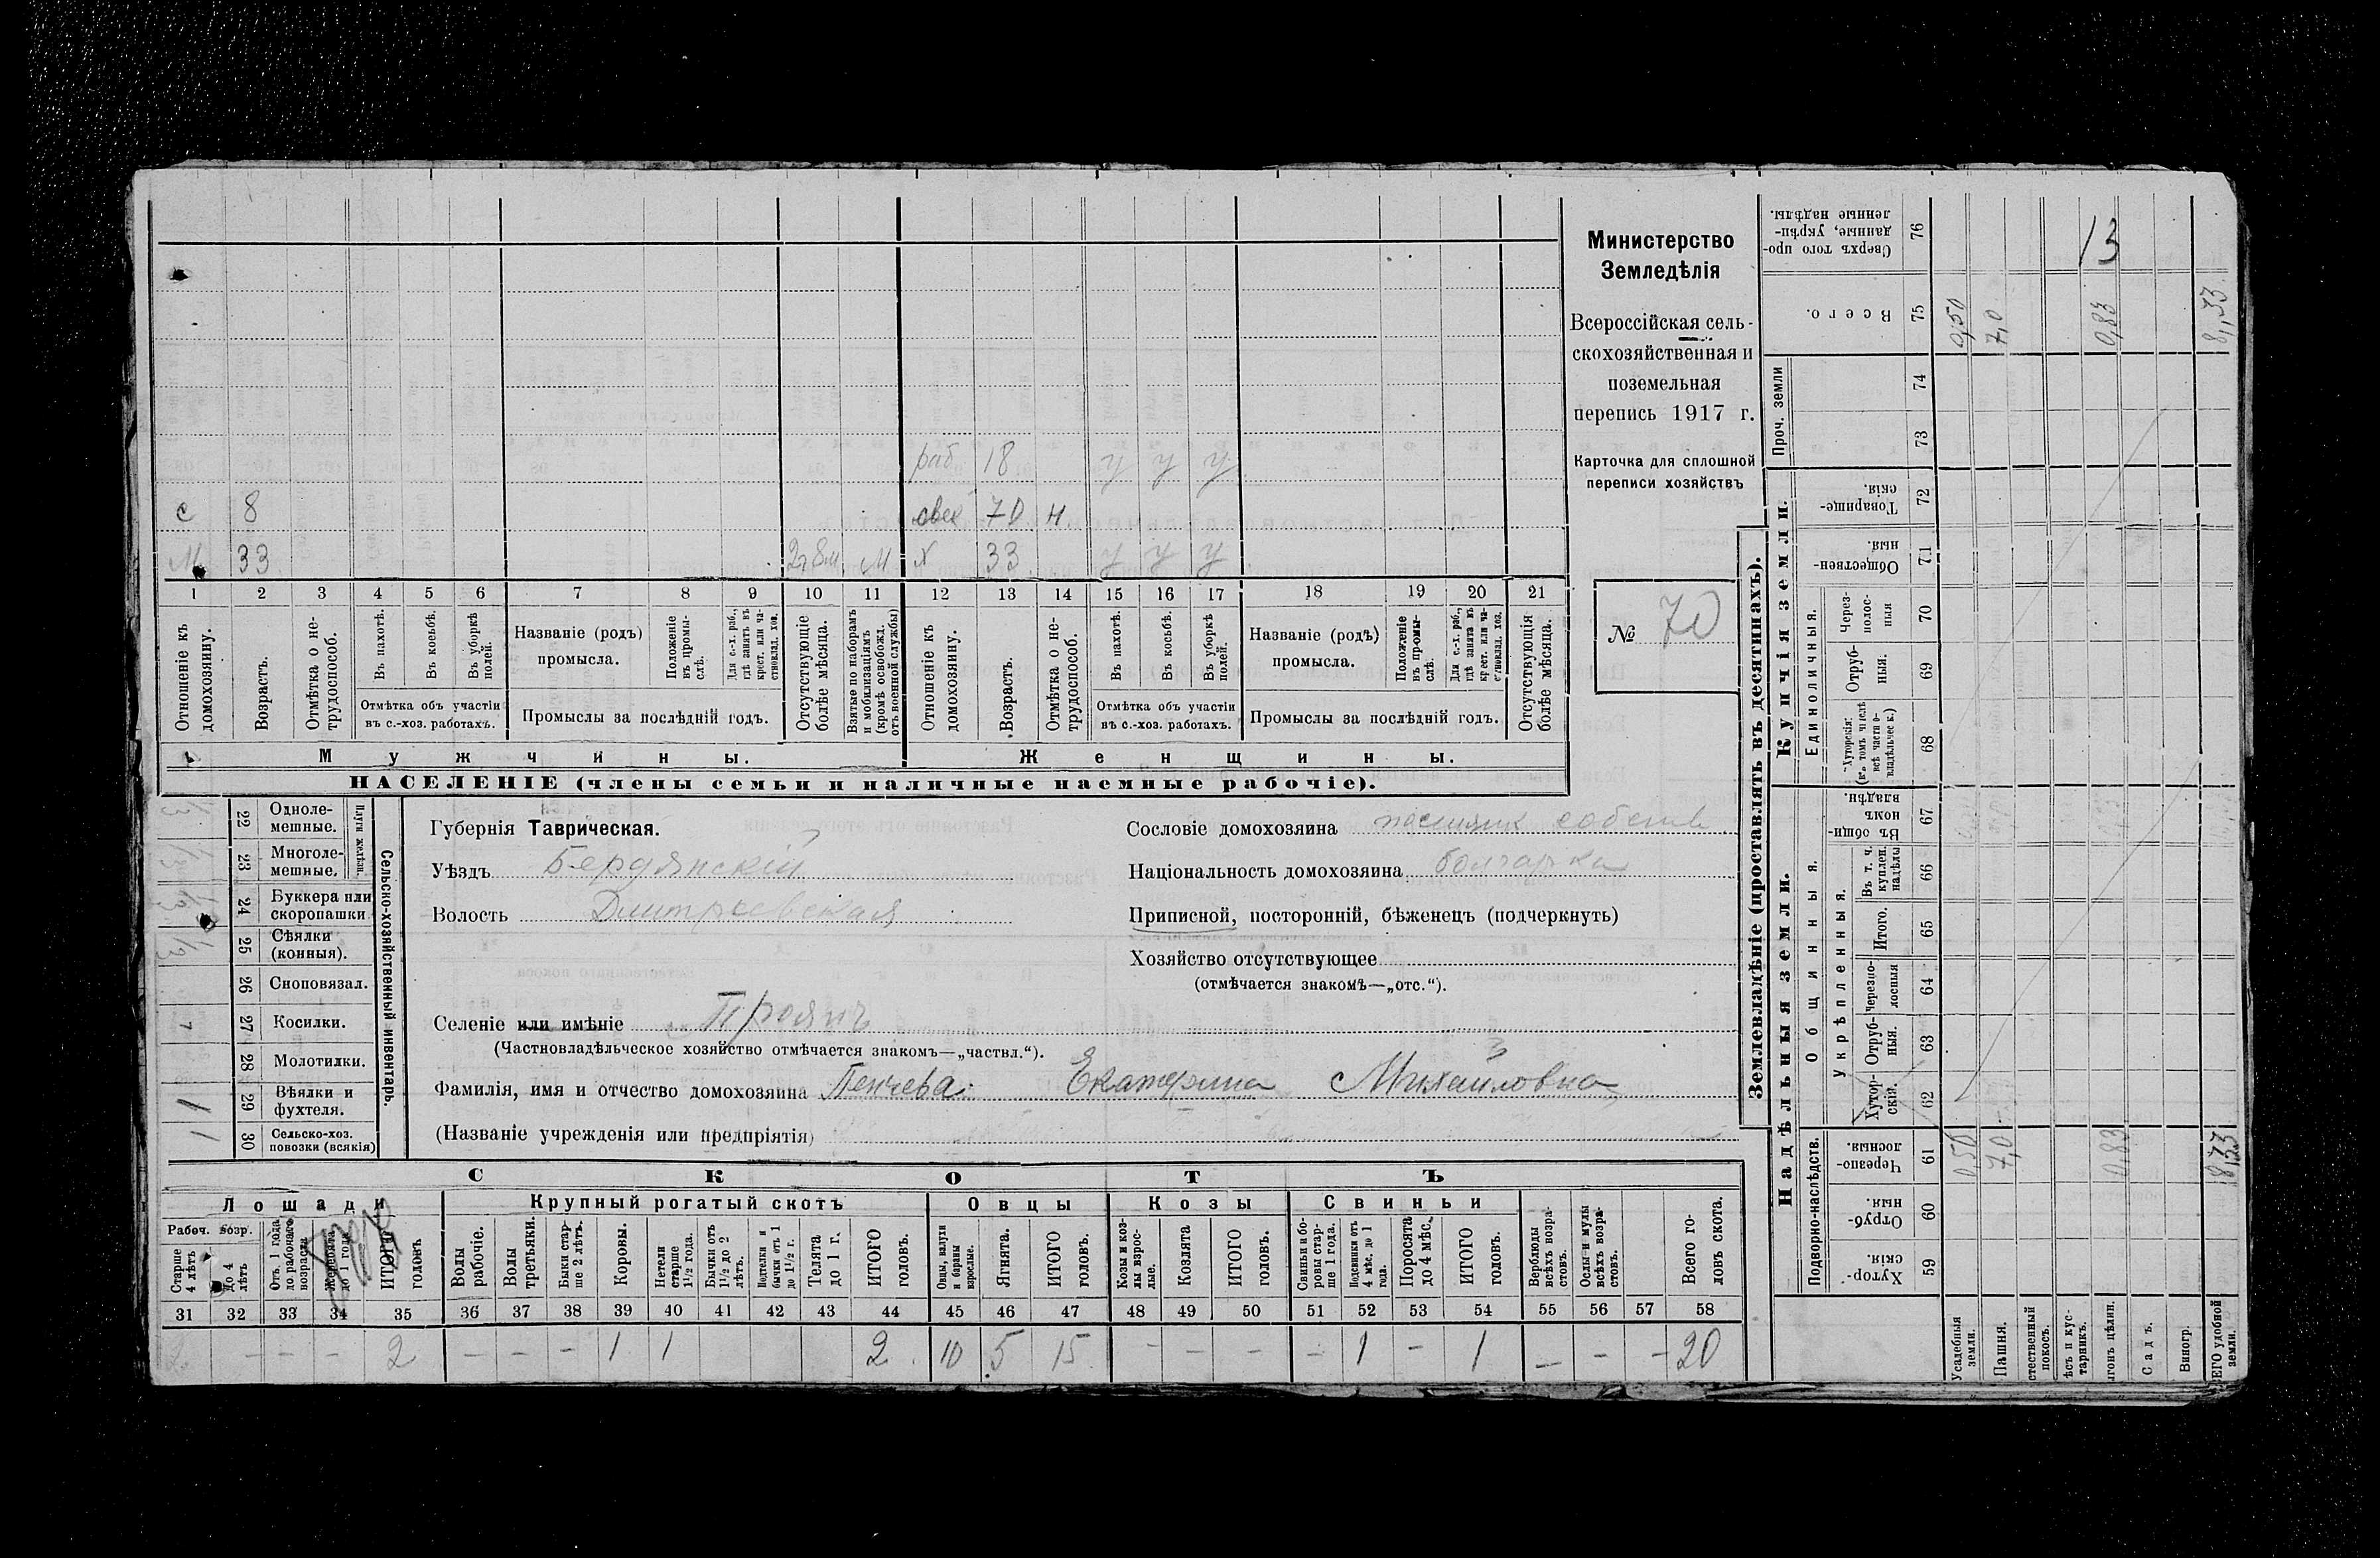 Министерство
Земледѣлія
Всероссійская сель-
скохозяйственная и
поземельная
перепись 1917 г.
Карточка для сплошной
переписи хозяйствъ
№ 70
раб 18 у у у
с 8 70 н
М 33 2г8м м х 33 у у у
1 2 3 4 5 6 7 8 9 10 11 12 13 14 15 16 17 18 19 20 21
Отношеніе къ домохозяину.
Возрастъ.
Отмѣтка о не-трудоспособ.
Въ пахотѣ.
Въ косьбѣ.
Въ уборкѣ полей.
Отмѣтка объ участіи
въ с.-хоз. работахъ.
Названіе (родъ)
промысла.
Положеніе въ промы-слѣ.
Для с.-х. раб., гдѣ занятъ въ крест. или ча-стновлад. хоз.
Промыслы за послѣдній годъ.
Отсутствующіе болѣе мѣсяца.
Взятые по наборамъ и мобилизаціямъ (кромѣ освобожд. отъ военной службы)
Отношеніе къ домохозяину.
Возрастъ.
Отмѣтка о не-трудоспособ.
Въ пахотѣ.
Въ косьбѣ.
Въ уборкѣ полей.
Отмѣтка объ участіи
въ с.-хоз. работахъ.
Названіе (родъ)
промысла.
Положеніе въ промы-слѣ.
Для с.-х. раб., гдѣ занята въ крест. или ча-стновлад. хоз.
Промыслы за послѣдній годъ.
Отсутствующія болѣе мѣсяца.
Мужчины.
Женщины.
НАСЕЛЕНІЕ (члены семьи и наличные наемные рабочіе).
Сельско-хозяйственный инвентарь.
Плуги желѣзн.
22 Одноле-мешные.
23 Многоле-мешные.
24 Буккера или скоропашки
25 Сѣялки (конныя).
26 Сноповязал.
27 Косилки.
28 Молотилки.
29 Вѣялки и фухтеля. 1
30 Сельско-хоз. повозки (всякія) 1
Губернія Таврическая.
Уѣздъ Бердянскій
Волость Дмитріевская
Селеніе или имѣніе Троянъ
(Частновладѣльческое хозяйство отмѣчается знакомъ—„частвл.“).
Фамилія, имя и отчество домохозяина Пенчева Екатерина Михайловна
(Названіе учрежденія или предпріятія)
Сословіе домохозяина поселянк собств
Національность домохозяина болгарка
Приписной, посторонній, бѣженецъ (подчеркнуть)
Хозяйство отсутствующее
(отмѣчается знакомъ—„отс.“).
СКОТЪ
Лошади
Крупный рогатый скотъ
Овцы
Козы
Свиньи
Рабоч. возр.
Старше 4 лѣтъ
До 4 лѣтъ
Отъ 1 года до рабочаго возраста
Жеребята до 1 года
ИТОГО головъ
Волы рабочіе.
Волы третьяки.
Быки стар-ше 2 лѣтъ.
Коровы.
Нетели старше 1½ года.
Бычки отъ 1½ до 2 лѣтъ.
Подтелки и бычки отъ 1 до 1½ г.
Телята до 1 г.
ИТОГО головъ.
Овцы, валухи и бараны взрослые.
Ягнята.
ИТОГО головъ.
Козы и коз-лы взрос-лые.
Козлята
ИТОГО головъ.
Свиньи и бо-ровы стар-ше 1 года.
Подсвинки отъ 4 мѣс. до 1 года.
Поросята до 4 мѣс.
ИТОГО головъ.
Верблюды всѣхъ возра-стовъ.
Ослы и мулы всѣхъ возра-стовъ.
Всего го-ловъ скота.
31 32 33 34 35 36 37 38 39 40 41 42 43 44 45 46 47 48 49 50 51 52 53 54 55 56 57 58
2 – – – 2 – – – 1 1 2 10 5 15 – – – – 1 – 1 – – – 20
Землевладѣніе (проставлять въ десятинахъ).
Надѣльныя земли.
Купчія земли.
Подворно-наслѣдств.
Общинныя.
Укрѣпленныя.
Единоличныя.
Проч. земли
Хутор-скія. 59
Отруб-ныя. 60
Черезпо-лосныя. 61
Хутор-скія. 62
Отруб-ныя. 63
Черезпо-лосныя 64
Итого. 65
Въ т. ч. куплен. надѣлы 66
Въ общин-номъ владѣн. 67
Хуторскія: (въ томъ числѣ всѣ части о-владѣльческ.) 68
Отруб-ныя. 69
Через-полос-ныя 70
Обществен-ныя. 71
Товарище-скія. 72
73
74
Всего. 75
Сверхъ того про-данные, укрѣп-ленные надѣлы. 76
Усадебныя земли. 0,50 0,50
Пашня. 7,0 7,0
стественный покосъ.
ѣсъ и кус-тарникъ.
гонъ цѣлин. 0,83 0,83 13
Садъ.
Виногр.
ЕГО удобной земли. 8,33 8,33